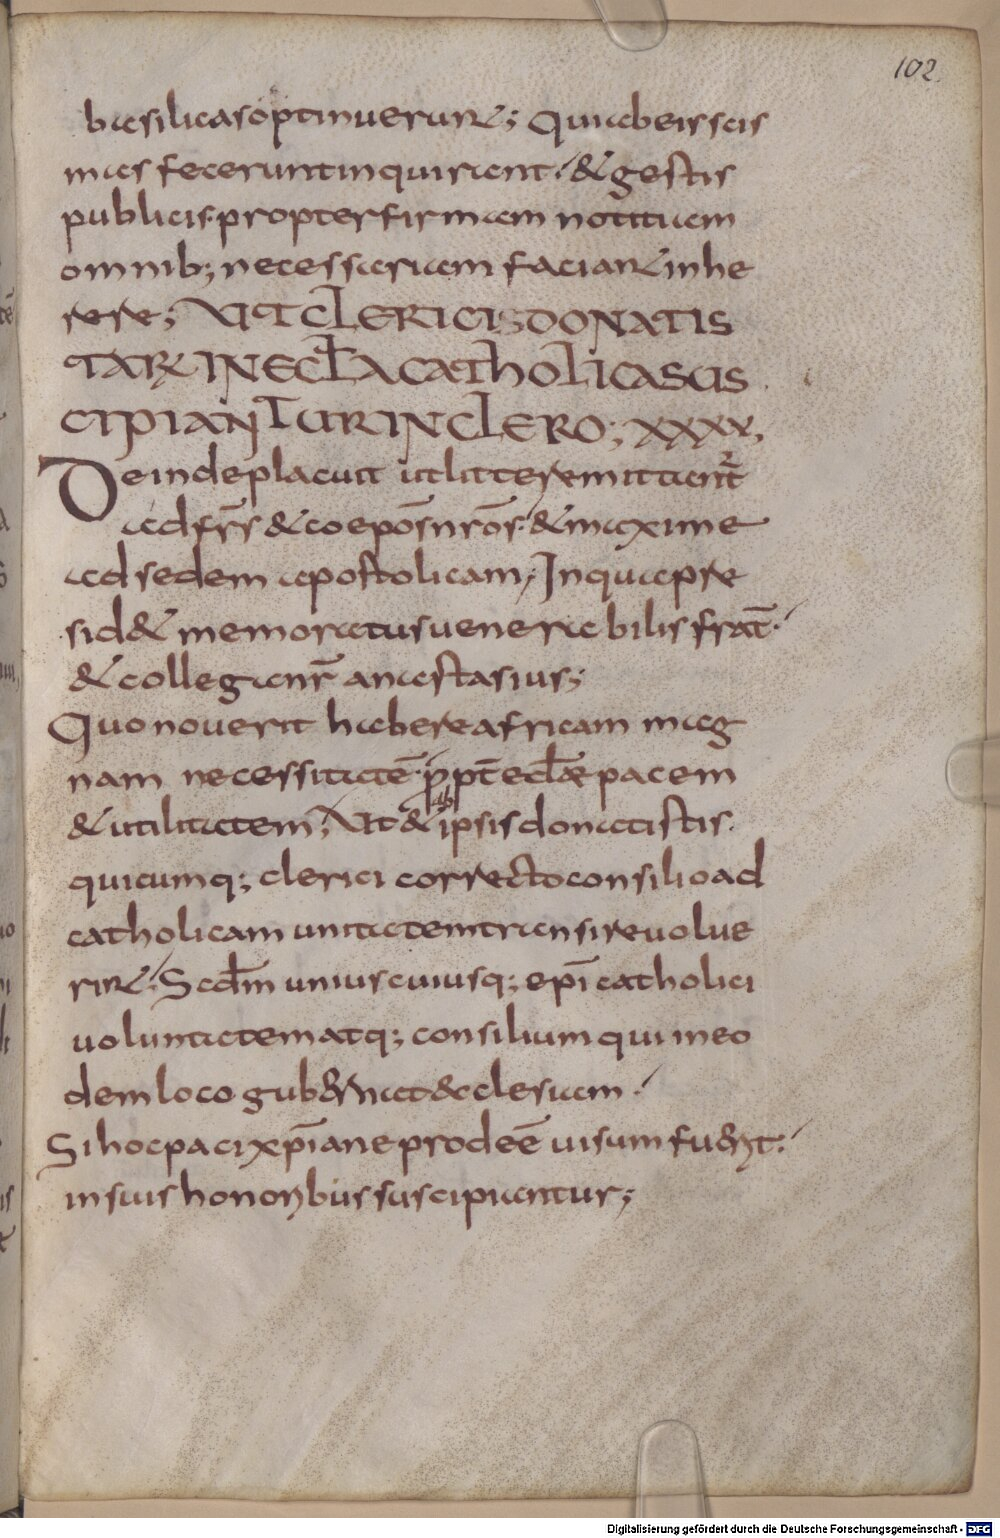 102.
basilicas optinuerunt; Qui ab eis scis
mas fecerunt inquirant. & gestis
publicis propter firmam notitiam
omnib; necessariam faciant inhe
rere; UT CLERICIS DONATIS
TARUM IN ECLA CATHOLICA SUS
CIPIANTUR IN CLERO; XXXV,
Deinde placuit ut litterae mittantr̄
ad frs̄ & coepōs nrōs. & maxime
ad sedem apostolicam, In qua pre
sid& memoratus uenerabilis frat̄.
& collega nr̄ anastasius;
Quo nouerit habere africam mag
nam necessitatē. ꝓpt̄ eclae pacem
& utilitatem, Ut & ab ipsis donatistis.
quicumq; clerici correcto consilio ad
catholicam unitatem transire uolue
rint. Scdm̄ uniuscuiusq; epī catholici
uoluntatem atq; consilium qui in eo
dem loco gubernat ecclesiam.
Si hoc paci xp̄iane prodeē uisum fuerit.
in suis honoribus suscipiantur;
Digitalisierung gefördert durch die Deutsche Forschungsgemeinschaft - DFG